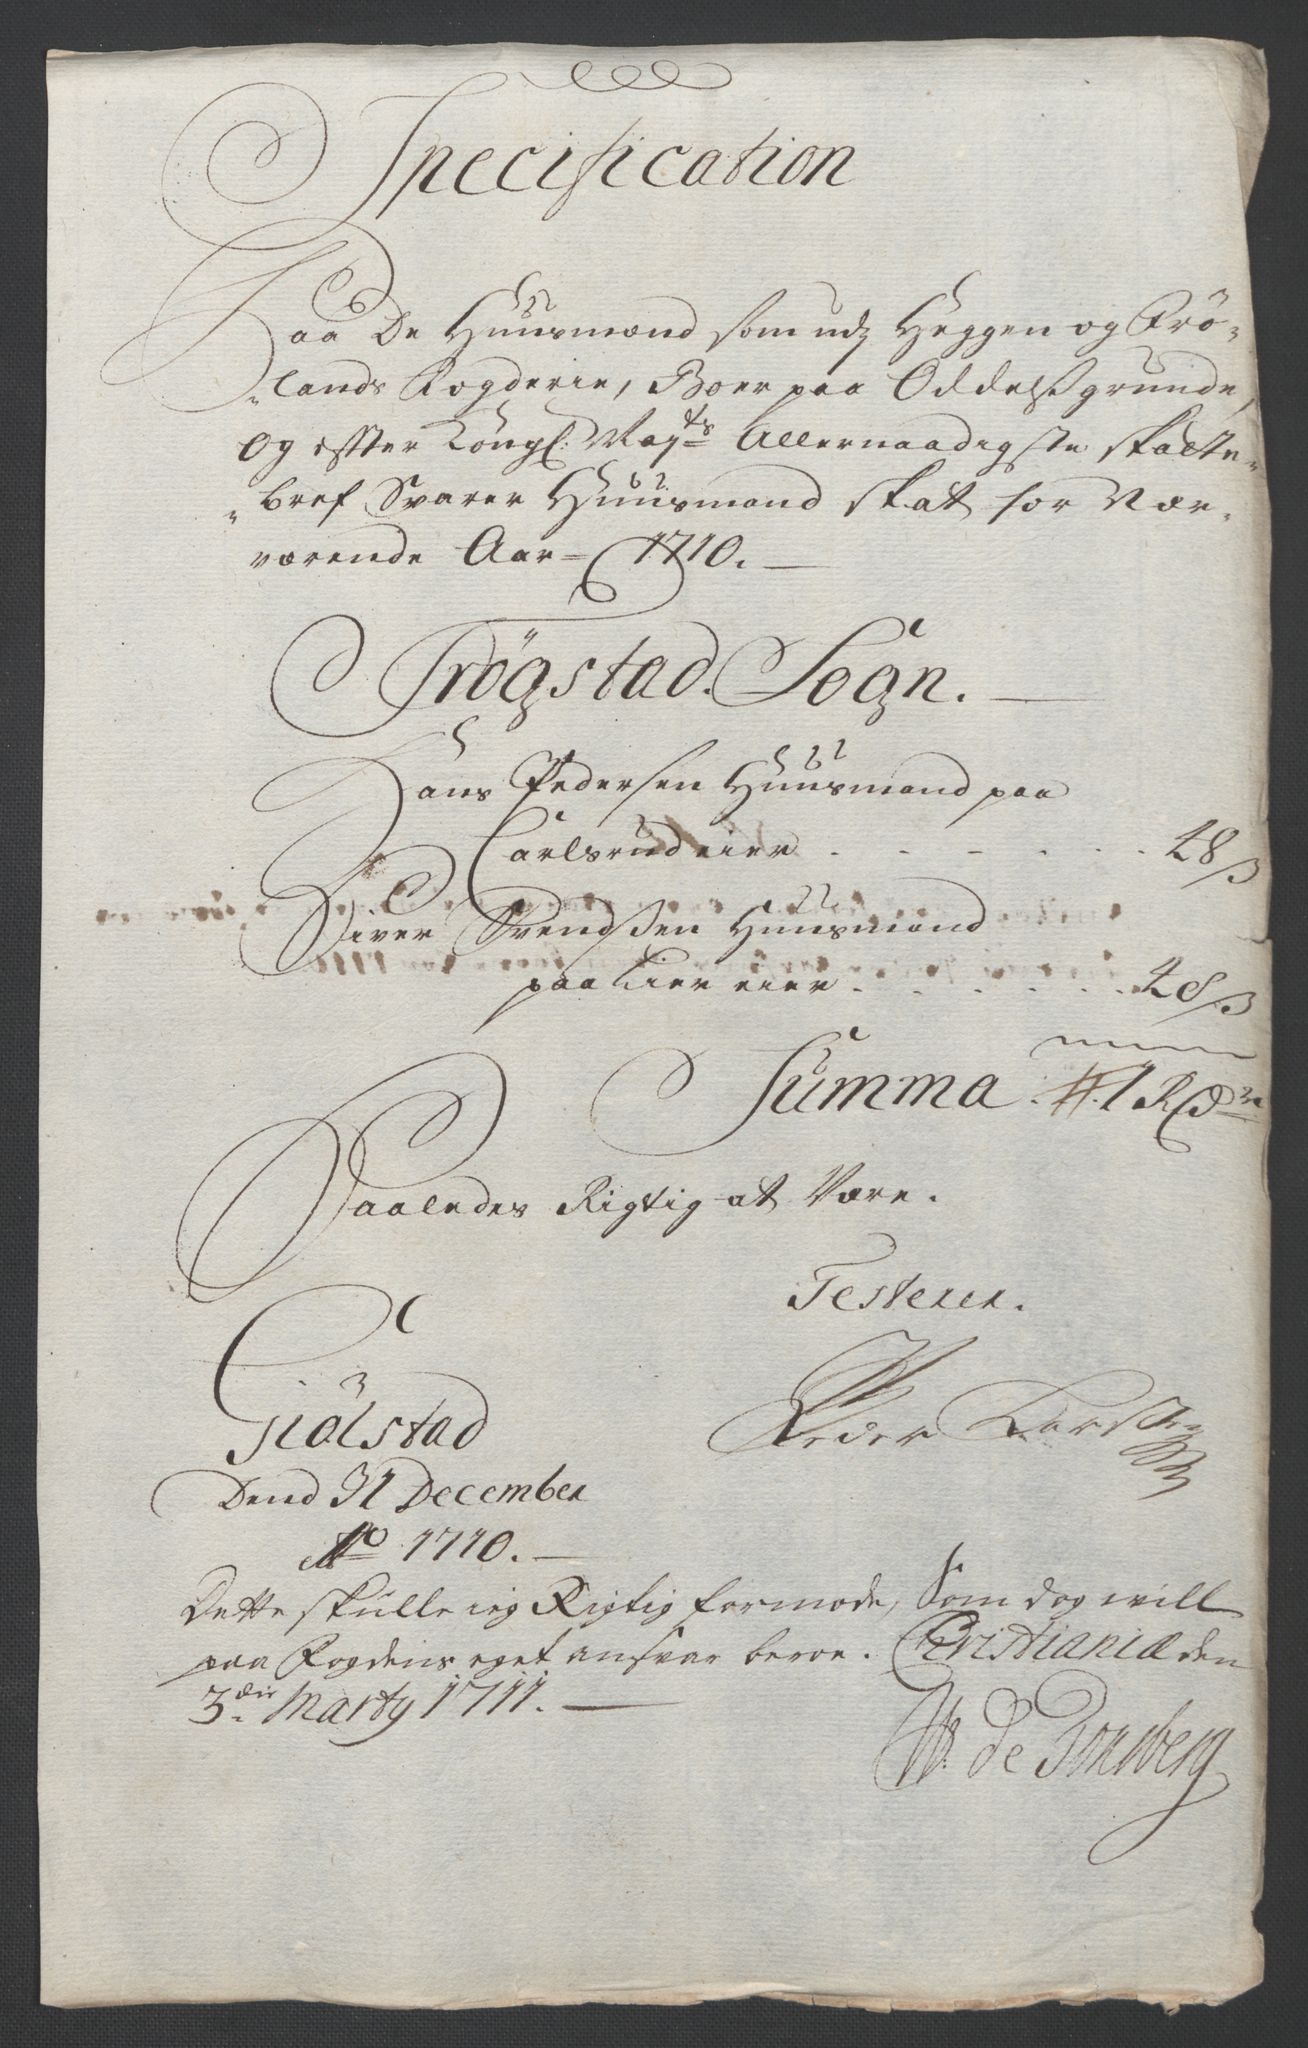 Specification
Paa De Huusmænd som udj Heggen og Frö-
lands Fogderie, Boer paa Oddelsgrunde,
og effter Kongl: Mayts Allernaadigste skatte-
bref Svarer Huusmand skat for Nær-
værende Aar 1710.
Trögstad Sogn.
Hans Pedersen Huusmand paa
Carlsrud eier 48 β
Siver Svendsen Huusmand
paa Lier eier 48 β
Summa 1 Rdr
Saaledes Rigtig at Være.
Testerer.
Giölstad
Dend 31 December
Ao 1710.
Peder Karsten
Dette skulle ieg Rigtig formode, Som dog will
paa Fogdens eget ansvar beroe. Christiania den
3die Marty 1711.
W. de Tonsberg